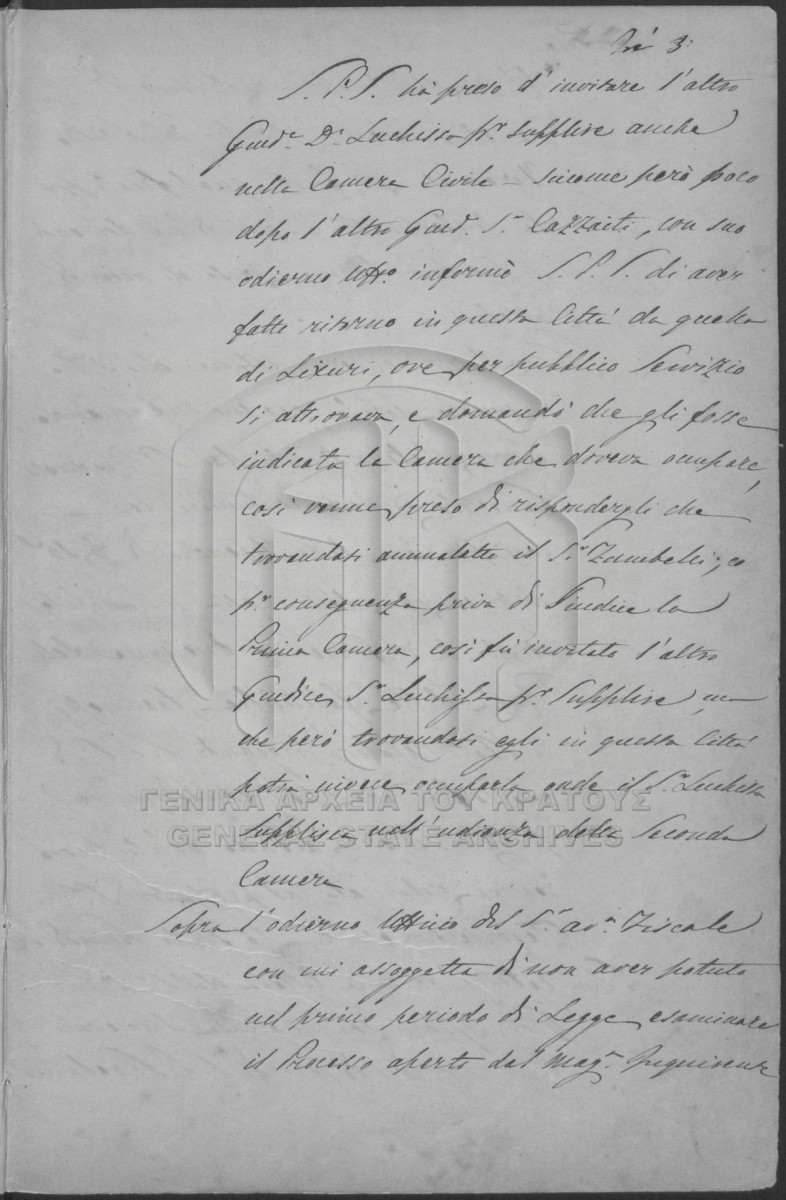 3:
S. P. S. hà preso d' invitare l' altro
Giud.e Dr Luchissa pr supplire anche
nella Camera Civile – siccome però poco
dopo l' altro Giud. Sr Cazzaiti, con suo
odierno Uffo informò S. P. S. di aver
fatto ritorno in questa Città da quella
di Lixuri, ove per pubblico Servizio
si attrovava, e domandò che gli fosse
indicata la Camera che doveva occupare,
così venne preso di rispondergli che
trovandosi ammalatto il Sr Zambelli, e
pr conseguenza priva di Giudice la
Prima Camera, così fù invitato l' altro
Giudice Sr Luchissa pr Supplire,
che però trovandosi egli in questa Città
potrà invece occuparla onde il Sr Luchissa
Supplisca nell' udienza della Seconda
Camera
Sopra l' odierno Uffizio del Sr avo Fiscale
con cui assoggetta di non aver potuto
nel primo periodo di Legge esaminare
il Processo aperto dal Mago Inquirente
ΓΕΝΙΚΑ ΑΡΧΕΙΑ ΤΟΥ ΚΡΑΤΟΥΣ
GENERAL STATE ARCHIVES